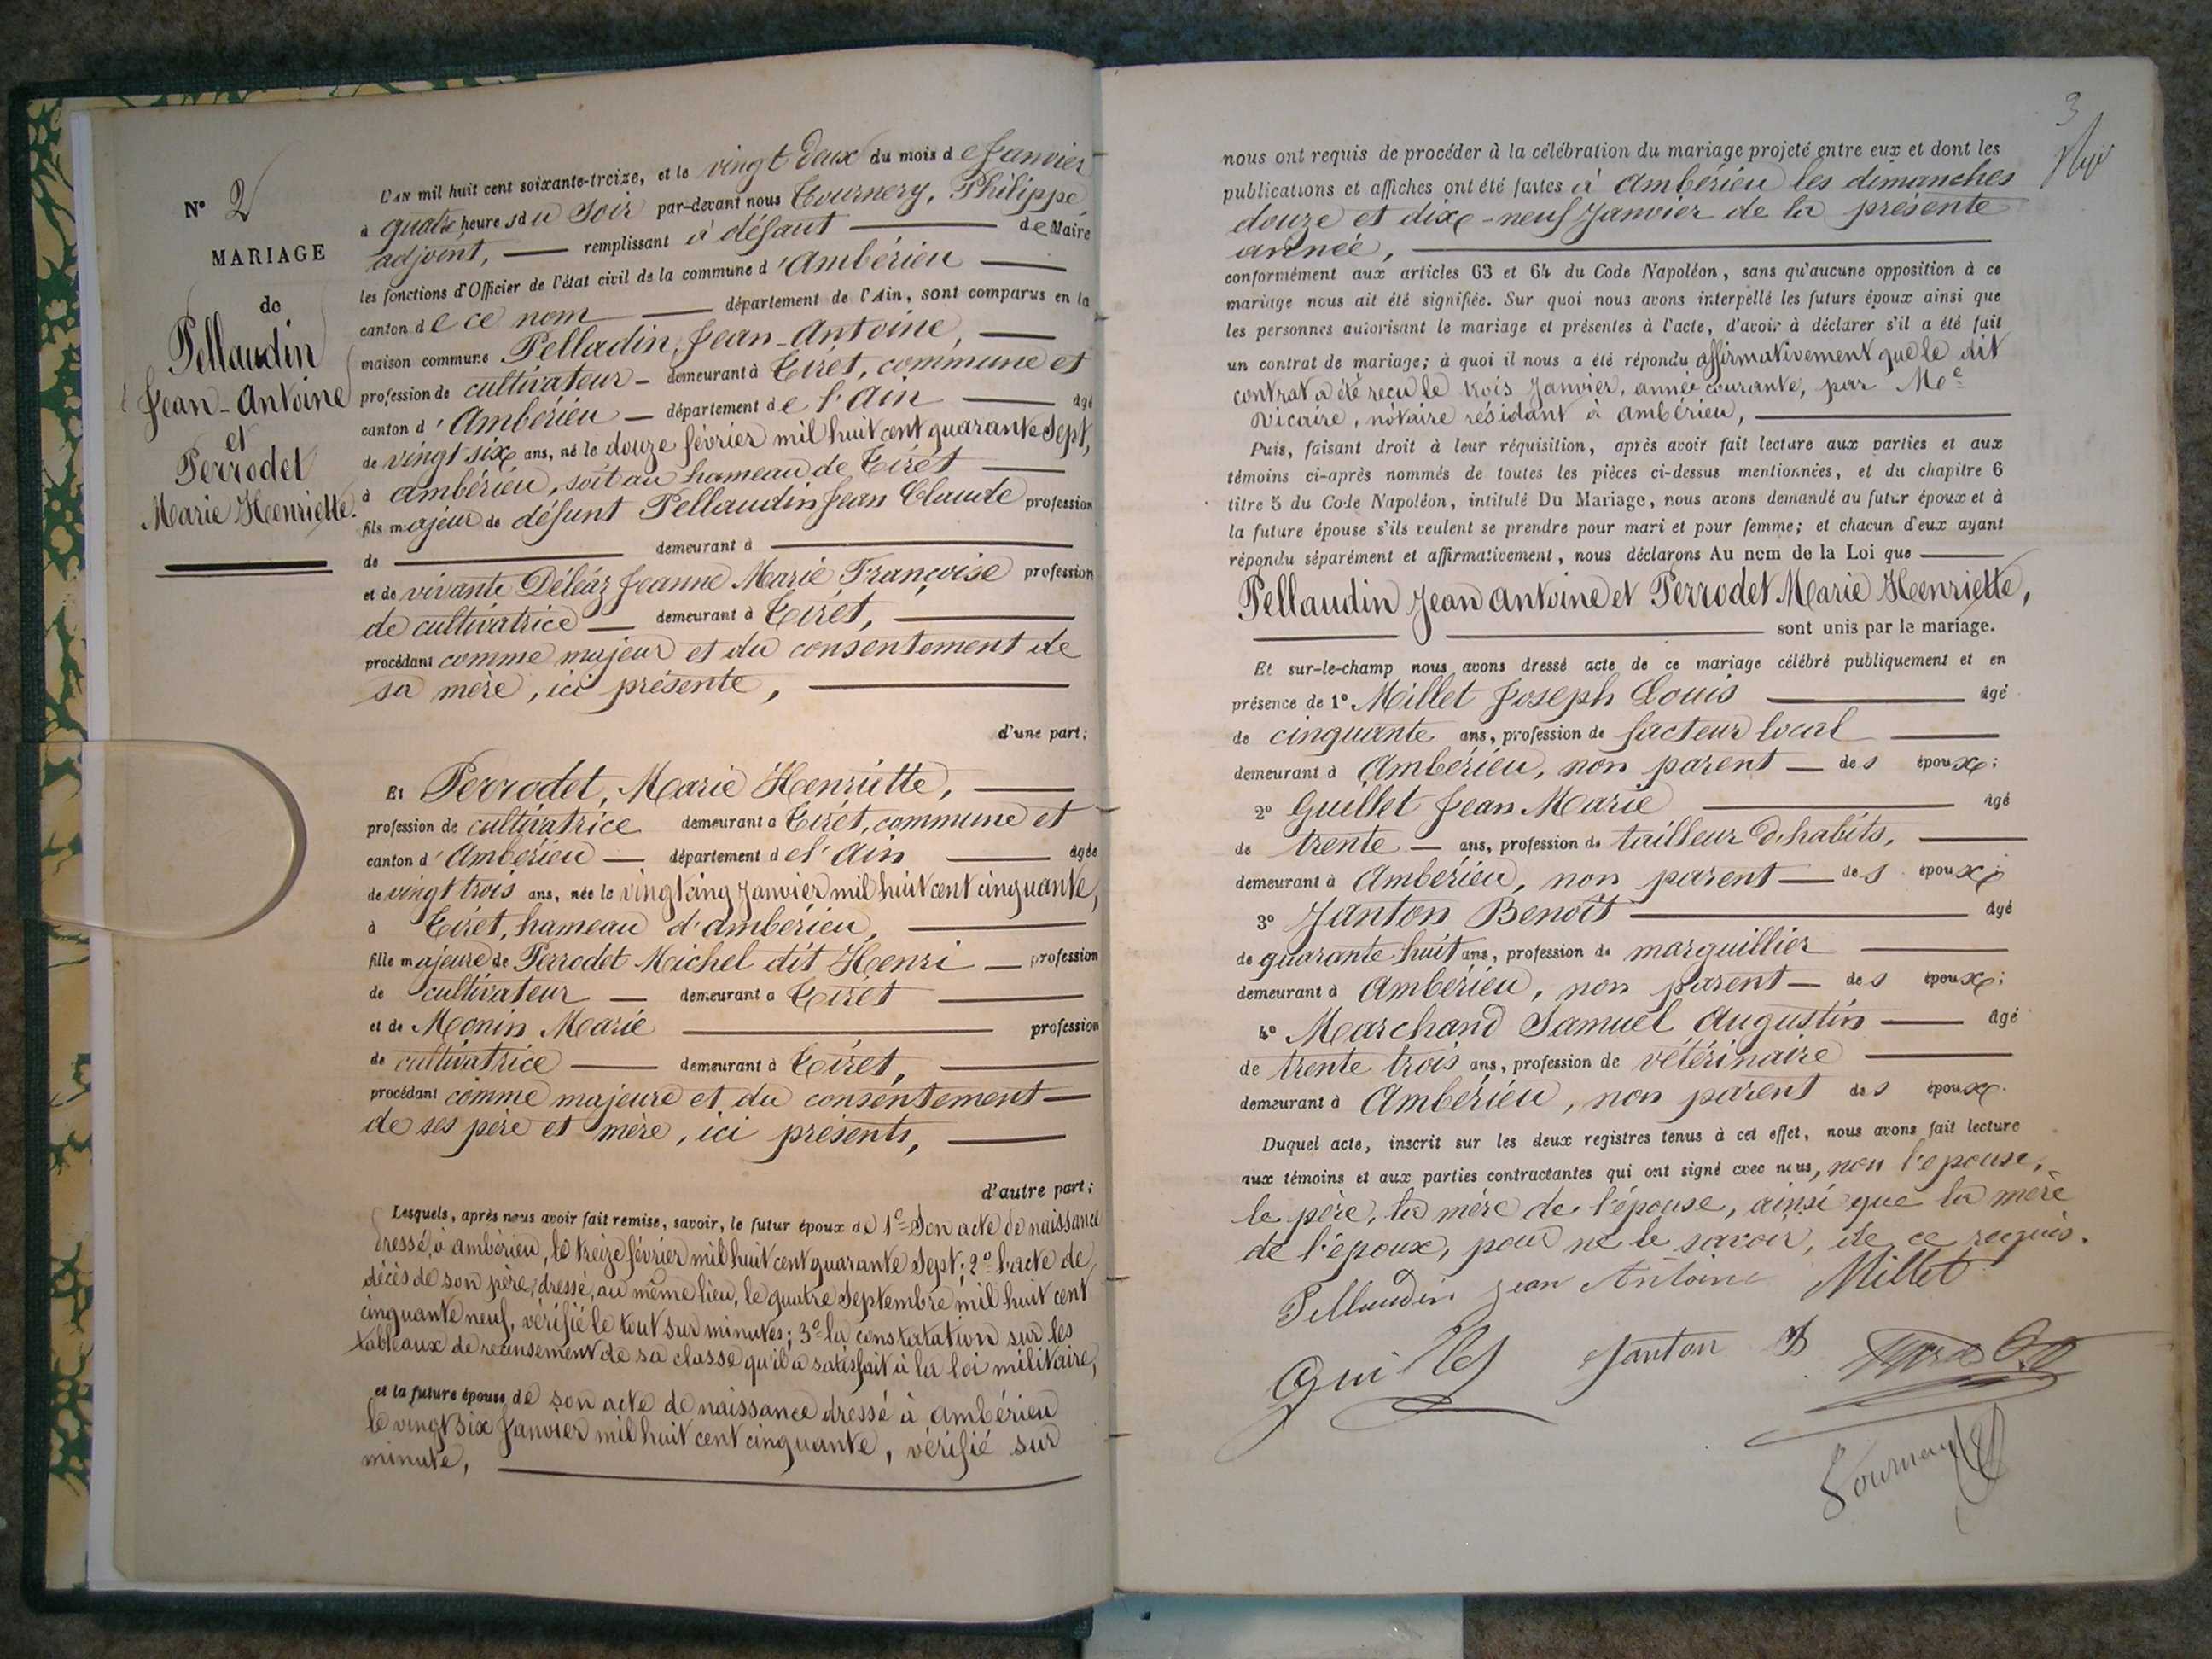 N° 2
MARIAGE
de
Pellaudin
Jean-Antoine
et
Perrodet
Marie Henriette.
L'AN mil huit cent soixante-treize, et le vingt deux du mois de Janvier
à quatre heures du Soir par-devant nous Tournery, Philippe
adjoint, remplissant à défaut de Maire
les fonctions d'Officier de l'état civil de la commune d'Ambérieu
canton de ce nom département de l'Ain, sont comparus en la
maison commune Pelladin, Jean-Antoine,
profession de cultivateur - demeurant à Tirét, commune et
canton d'Ambérieu - département de l'Ain âgé
de vingt six ans, né le douze février mil huit cent quarante Sept,
à ambérieu, soit au hameau de Tirét
fils majeur de défunt Pellaudin Jean Claude profession
de demeurant à
et de vivante Déléaz Jeanne Marie Françoise profession
de cultivatrice demeurant à Tirét,
procédant comme majeur et du consentement de
sa mère, ici présente,
d'une part;
Et Perrodet, Marie Henriette,
profession de cultivatrice demeurant à Tirét, commune et
canton d'Ambérieu - département de l'Ain âgée
de vingt trois ans, née le vingt cinq Janvier mil huit cent cinquante,
à Tirét, hameau d'ambérieu,
fille majeure de Perrodet Michel dit Henri - profession
de cultivateur - demeurant à Tirét
et de Monin Marie profession
de cultivatrice demeurant à Tirét,
procédant comme majeure et du consentement
de ses père et mère, ici présents,
d'autre part;
Lesquels, après nous avoir fait remise, savoir, le futur époux de 1° Son acte de naissance
dressé, à ambérieu, le treize février mil huit cent quarante Sept; 2° l'acte de
décès de son père, dressé, au même lieu, le quatre Septembre mil huit cent
cinquante neuf, vérifié le tout sur minutes; 3° la constatation sur les
tableaux de recensement de sa classe qu'il a satisfait à la loi militaire,
et la future épouse, de son acte de naissance dressé à ambérieu
le vingt six Janvier mil huit cent cinquante, vérifié sur
minute,
3
nous ont requis de procéder à la célébration du mariage projeté entre eux et dont les
publications et affiches ont été faites à Ambérieu les dimanches
douze et dixe-neuf Janvier de la présente
année,
conformément aux articles 63 et 64 du Code Napoléon, sans qu'aucune opposition à ce
mariage nous ait été signifiée. Sur quoi nous avons interpellé les futurs époux ainsi que
les personnes autorisant le mariage et présentes à l'acte, d'avoir à déclarer s'il a été fait
un contrat de mariage; à quoi il nous a été répondu affirmativement que le dit
contrat a été reçu le trois Janvier, année courante, par Me
Vicaire, notaire résidant à ambérieu,
Puis, faisant droit à leur réquisition, après avoir fait lecture aux parties et aux
témoins ci-après nommés de toutes les pièces ci-dessus mentionnées, et du chapitre 6
titre 5 du Code Napoléon, intitulé Du Mariage, nous avons demandé au futur époux et à
la future épouse s'ils veulent se prendre pour mari et pour femme; et chacun d'eux ayant
répondu séparément et affirmativement, nous déclarons Au nom de la Loi que
Pellaudin Jean antoine et Perrodet Marie Henriette,
sont unis par le mariage.
Et sur-le-champ nous avons dressé acte de ce mariage célébré publiquement et en
présence de 1° Millet Joseph Louis âgé
de cinquante ans, profession de facteur local
demeurant à Ambérieu, non parent - des époux;
2° Guillet Jean Marie âgé
de trente - ans, profession de tailleur d'habits,
demeurant à Ambérieu, non parent - des époux;
3° Janton Benoît âgé
de quarante huit ans, profession de marguillier
demeurant à Ambérieu, non parent - des époux;
4° Marchand Samuel Augustin âgé
de trente trois ans, profession de vétérinaire
demeurant à Ambérieu, non parent des époux.
Duquel acte, inscrit sur les deux registres tenus à cet effet, nous avons fait lecture
aux témoins et aux parties contractantes qui ont signé avec nous, non l'épouse,
le père, la mère de l'épouse, ainsi que la mère
de l'époux, pour ne le savoir, de ce requis.
Pellaudin Jean Antoine Millet
Guillet Janton B
Tournery